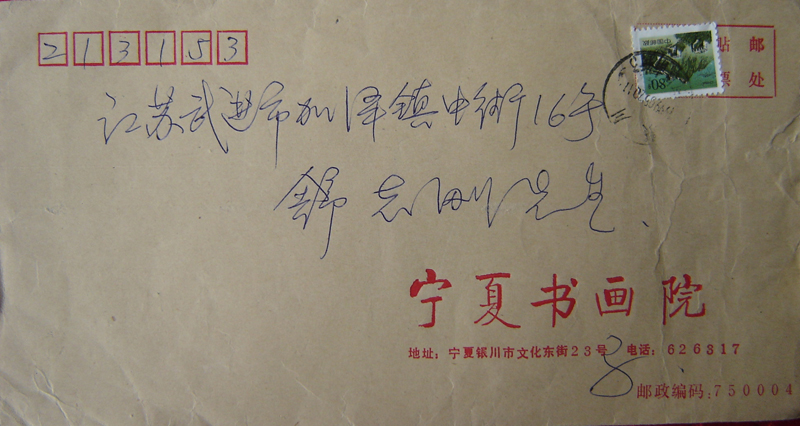 213153
贴邮
票处
80
江苏武进市加泽镇中街16号
志刚先生、
宁夏书画院
地址：宁夏银川市文化东街23号 电话：626317
邮政编码：750004